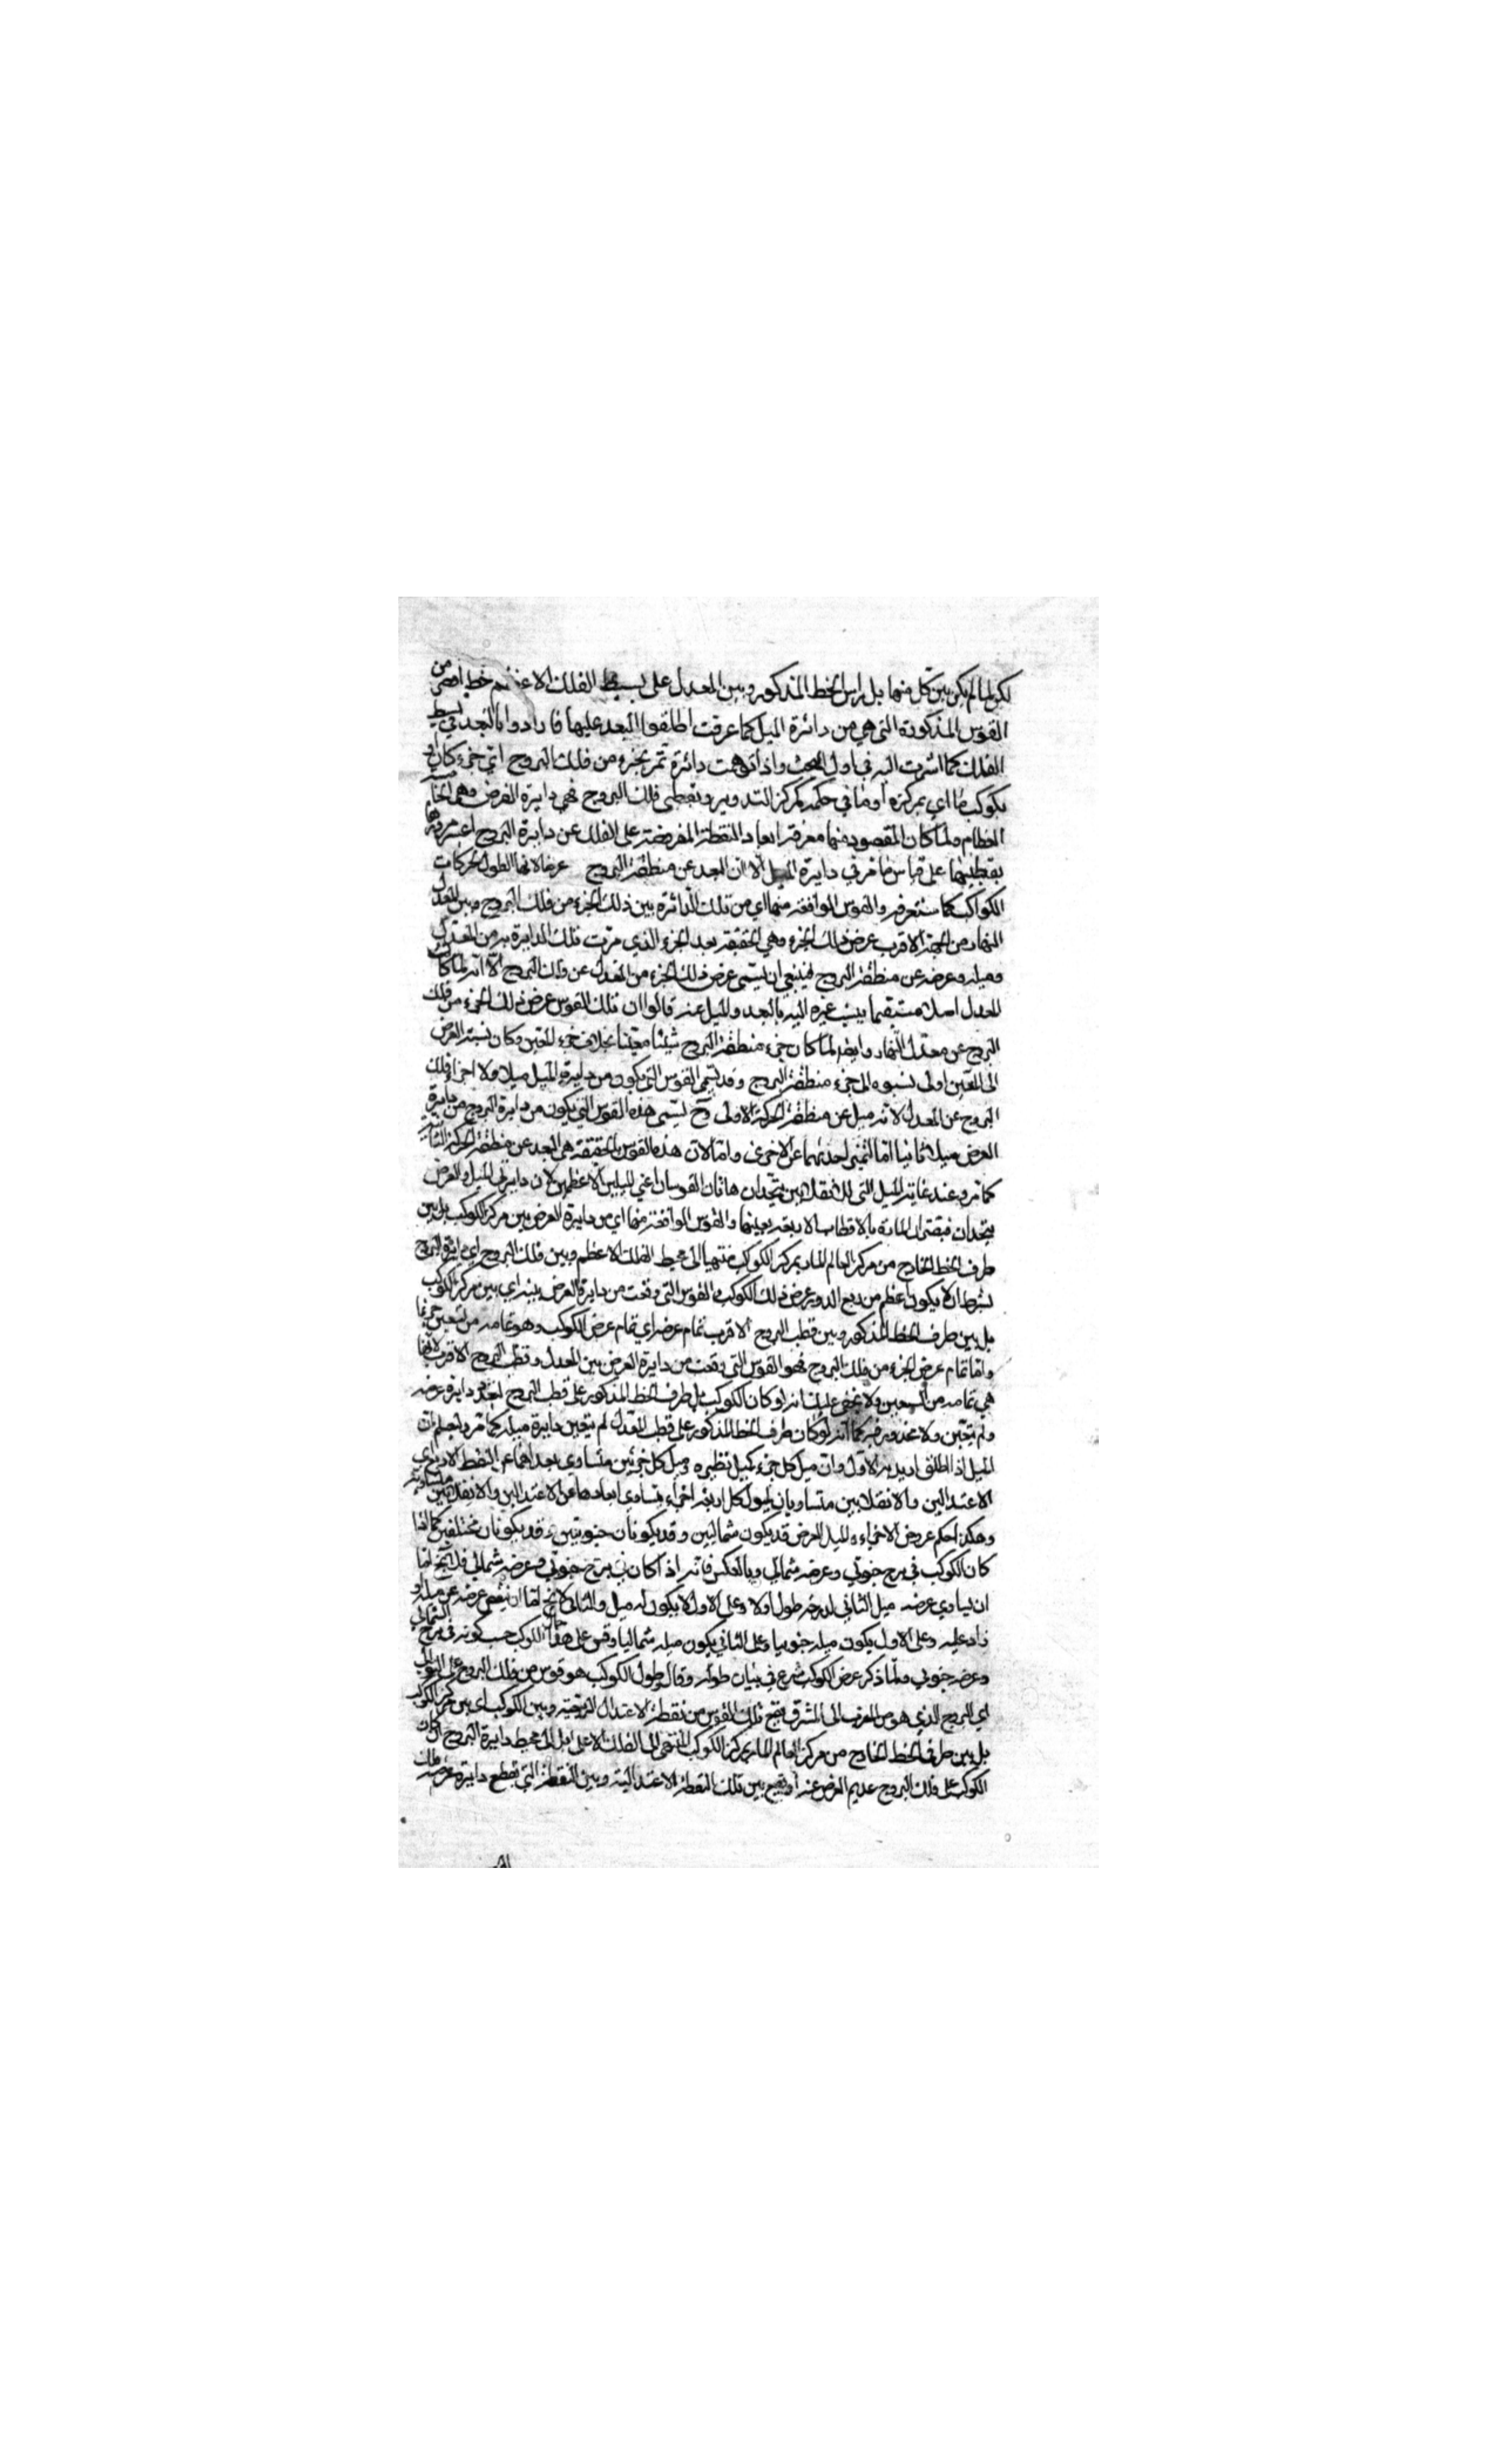 لكن لما لم يكن بين كل منهما بل راس الخط المذكور وبين المعدل على بسيط الفلك الاعظم خط اقصر من
القوس المذكورة التي هي من دائرة الميل كما عرفت اطلقوا البعد عليها فارادوا بالبعد في بسيط
الفلك كما اشرت اليه في اول البحث واذا توهمت دائرة تمر بجزء من فلك البروج اي جزء كان او
بكوكب ما اي بمركزه او ما في حكمه كمركز التدوير وبقطبي فلك البروج فهي دايرة العرض وهي ايضا
العظام ولما كان المقصود منها معرفة ابعاد النقطة المفروضة على الفلك عن دايرة البروج اعتبر مرورها
بقطبيها على قياس ما مر في دايرة الميل الا ان البعد عن منطقة البروج عرضا لانها الطول لحركات
الكواكب كما ستعرفه والقوس الواقعة منها اي من تلك الدائرة بين ذلك الجزء من فلك البروج وبين معدل
النهار من الجهة الاقرب عرض ذلك الجزء وهي بالحقيقة بعد الجزء الذي مرت تلك الدايرة به من المعدل
وميله وعرضه عن منطقة البروج فينبغي ان يسمى عرض ذلك الجزء من المعدل عن فلك البروج الا انه لما كان
المعدل اصلا مستقيما ينسب غيره اليه بالبعد والميل عنه قالوا ان تلك القوس عرض ذلك الجزء من فلك
البروج عن معدل النهار وايضا لما كان جزء منطقة البروج شيئا معينا بخلاف جزء المعدل وكان نسبة العرض
الى المعين اولى نسبوه الى جزء منطقة البروج وقد تسمى القوس التي يكون من دايرة الميل ميلا اولا لاجزاء فلك
البروج عن المعدل لانه ميل عن منطقة الحركة الاولى وح تسمى هذه القوس التي يكون من دايرة البروج من دايرة
العرض ميلا ثانيا اما التميز احديهما عن الاخرى واما لان هذه القوس بالحقيقة هي البعد عن منطقة الحركة الثانية
كما مر وعند غاية الميل التي للانقلابين يتحدان هاتان القوسان اعني الميلين الاعظمين لان دايرتي الميل والعرض
يتحدان فيقتران المارة بالاقطاب الاربعة بعينها والقوس الواقعة منها اي من دايرة العرض بين مركز الكوكب بل بين
طرف الخط الخارج من مركز العالم المار بمركز الكوكب منتهيا الى محيط الفلك الاعظم وبين فلك البروج اي دايرة البروج
بشرط ان لا يكون اعظم من ربع الدور عرض ذلك الكوكب والقوس التي وقعت من دايرة العرض بينه اي بين مركز الكوكب
بل بين طرف الخط المذكور وبين قطب البروج الاقرب تمام عرضه اي تمام عرض الكوكب وهو تمامه من تسعين جزءا
واما تمام عرض الجزء من فلك البروج فهو القوس التي وقعت من دايرة العرض بين المعدل وقطب البروج الاقرب لانها
هي تمامه من التسعين ولا يخفى عليك انه لو كان الكوكب بل طرف الخط المذكور على قطب البروج دايرة عرضه
ولم يتعين ولا محذور فيه كما انه لو كان طرف الخط المذكور على قطب المعدل لم يتعين دايرة ميله كما مر واعلم ان
الميل اذا اطلق اريد به الاول وان ميل كل جزء كميل نظيره وميل كل جزئين متساوي بعداهما عن النقط الاربع اي
الاعتدالين والانقلابين متساويان ليول كل اربعة اجزاء يتساوى ابعادها عن الاعتدالين والانقلابين متساوية
وهكذا حكم عروض الاجزاء والميل والعرض قد يكون شماليين وقد يكونان جنوبيين وقد يكونان مختلفين كما اذا
كان الكوكب في برج جنوبي وعرضه شمالي وبالعكس فانه اذا كان في برج جنوبي وعرضه شمالي فلا يخ اما
ان يساوي عرضه ميل الثاني لدرجة طوله اولا وعلى الاول لا يكون له ميل والثاني لا يخ اما ان ينقص عرضه عن ميله او
زاد عليه وعلى الاول يكون ميله جنوبيا وعلى الثاني يكون ميله شماليا وقس على هذا حال الكوكب حسب كونه في برج الشمالي
وعرضه جنوبي ولما ذكر عرض الكوكب شرع في بيان طوله وقال وطول الكوكب هو قوس من فلك البروج على التوالي
اي البروج الذي هو من المغرب الى المشرق يقع تلك القوس من نقطة الاعتدال الربيعية وبين الكوكب اي بين مركز الكوكب
بل بين طرف الخط الخارج من مركز العالم المار بمركز الكوكب المنتهي الى الفلك الاعلى بل الى محيط دايرة البروج ان كان
الكوكب على فلك البروج عديم العرض عنه او يقع بين تلك النقطة الاعتدالية وبين النقطة التي يقطع دايرة عرضه فلك